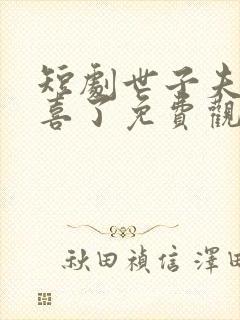 短劇世子夫
喜了免費觀
秋田禎信 澤田